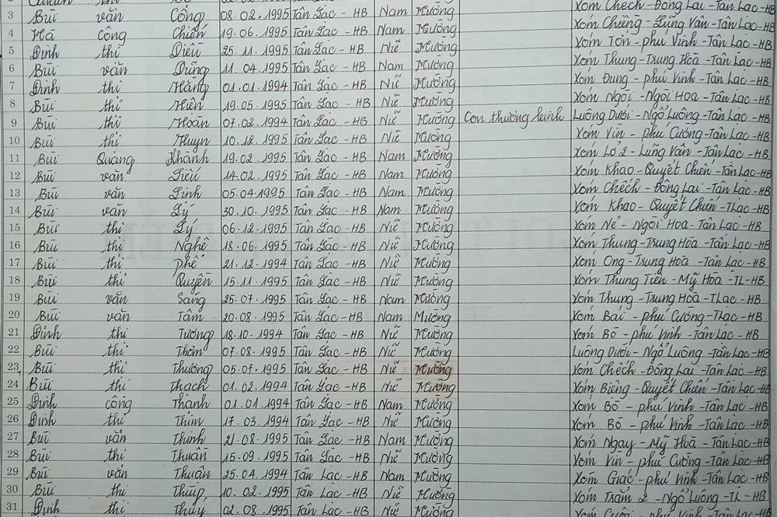 3 Bùi văn Công 08.02.1995 Tân Lạc - HB Nam Mường Xóm Chếch - Đông Lai - Tân Lạc - HB
4 Hà công Chiến 19.06.1995 Tân Lạc - HB Nam Mường Xóm Chiềng - Lũng Vân - Tân Lạc - HB
5 Đinh thị Diệu 25.11.1995 Tân Lạc - HB Nữ Mường Xóm Tón - phú Vinh - Tân Lạc - HB
6 Bùi văn Dũng 11.04.1995 Tân Lạc - HB Nam Mường Xóm Thung - Trung Hoà - Tân Lạc - HB
7 Đinh thị Hằng 01.01.1994 Tân Lạc - HB Nữ Mường Xóm Đung - phú Vinh - Tân Lạc - HB
8 Bùi thị Hiền 19.05.1995 Tân Lạc - HB Nữ Mường Xóm Ngòi - Ngòi Hoa - Tân Lạc - HB
9 Bùi thị Hoàn 07.02.1994 Tân Lạc - HB Nữ Mường Con thương binh Luông Dưới - Ngổ Luông - Tân Lạc - HB
10 Bùi thị Huyn 10.12.1995 Tân Lạc - HB Nữ Mường Xóm Vin - phú Cường - Tân Lạc - HB
11 Bùi Quang Khánh 19.02.1995 Tân Lạc - HB Nam Mường Xóm Lở 2 - Lũng Vân - Tân Lạc - HB
12 Bùi văn 14.02.1995 Tân Lạc - HB Nam Mường Xóm Khao - Quyết Chiến - Tân Lạc - HB
13 Bùi văn Linh 05.04.1995 Tân Lạc - HB Nam Mường Xóm Chếch - Đông Lai - Tân Lạc - HB
14 Bùi văn Lý 30.10.1995 Tân Lạc - HB Nam Mường Xóm Khao - Quyết Chiến - TLạc - HB
15 Bùi thị Lý 06.12.1995 Tân Lạc - HB Nữ Mường Xóm Né - Ngòi Hoa - Tân Lạc - HB
16 Bùi thị Nghê 18.06.1995 Tân Lạc - HB Nữ Mường Xóm Thung - Trung Hoà - Tân Lạc - HB
17 Bùi thị phê 21.12.1994 Tân Lạc - HB Nữ Mường Xóm Ong - Trung Hoà - Tân Lạc - HB
18 Bùi thị Quyên 15.11.1995 Tân Lạc - HB Nữ Mường Xóm Thung Tiến - Mỹ Hoà - TL - HB
19 Bùi văn Sang 25.07.1995 Tân Lạc - HB Nam Mường Xóm Thung - Trung Hoà - TLạc - HB
20 Bùi văn Tâm 20.08.1995 Tân Lạc - HB Nam Mường Xóm Bái - phú Cường - TLạc - HB
21 Đinh thị Tương 18.10.1994 Tân Lạc - HB Nữ Mường Xóm Bò - phú Vinh - Tân Lạc - HB
22 Bùi thị Thơm 07.08.1995 Tân Lạc - HB Nữ Mường Luông Dưới - Ngổ Luông - Tân Lạc - HB
23 Bùi thị Thương 05.07.1995 Tân Lạc - HB Nữ Mường Xóm Chếch - Đông Lai - Tân Lạc - HB
24 Bùi thị Thạch 01.02.1994 Tân Lạc - HB Nữ Mường Xóm Biệng - Quyết Chiến - Tân Lạc - HB
25 Đinh công Thành 01.01.1994 Tân Lạc - HB Nam Mường Xóm Bò - phú Vinh - Tân Lạc - HB
26 Đinh thị Thìm 17.03.1994 Tân Lạc - HB Nữ Mường Xóm Bò - phú Vinh - Tân Lạc - HB
27 Bùi văn Thinh 21.08.1995 Tân Lạc - HB Nam Mường Xóm Ngay - Mỹ Hoà - Tân Lạc - HB
28 Bùi thị Thuần 15.09.1995 Tân Lạc - HB Nữ Mường Xóm Vin - phú Cường - Tân Lạc - HB
29 Bùi văn Thuân 25.04.1994 Tân Lạc - HB Nam Mường Xóm Giác - phú Vinh - Tân Lạc - HB
30 Bùi thị 10.02.1995 Tân Lạc - HB Nữ Mường Xóm Trẳm 2 - Ngổ Luông - TL - HB
31 Đinh thị Thủy 02.08.1995 Tân Lạc - HB Nữ Mường